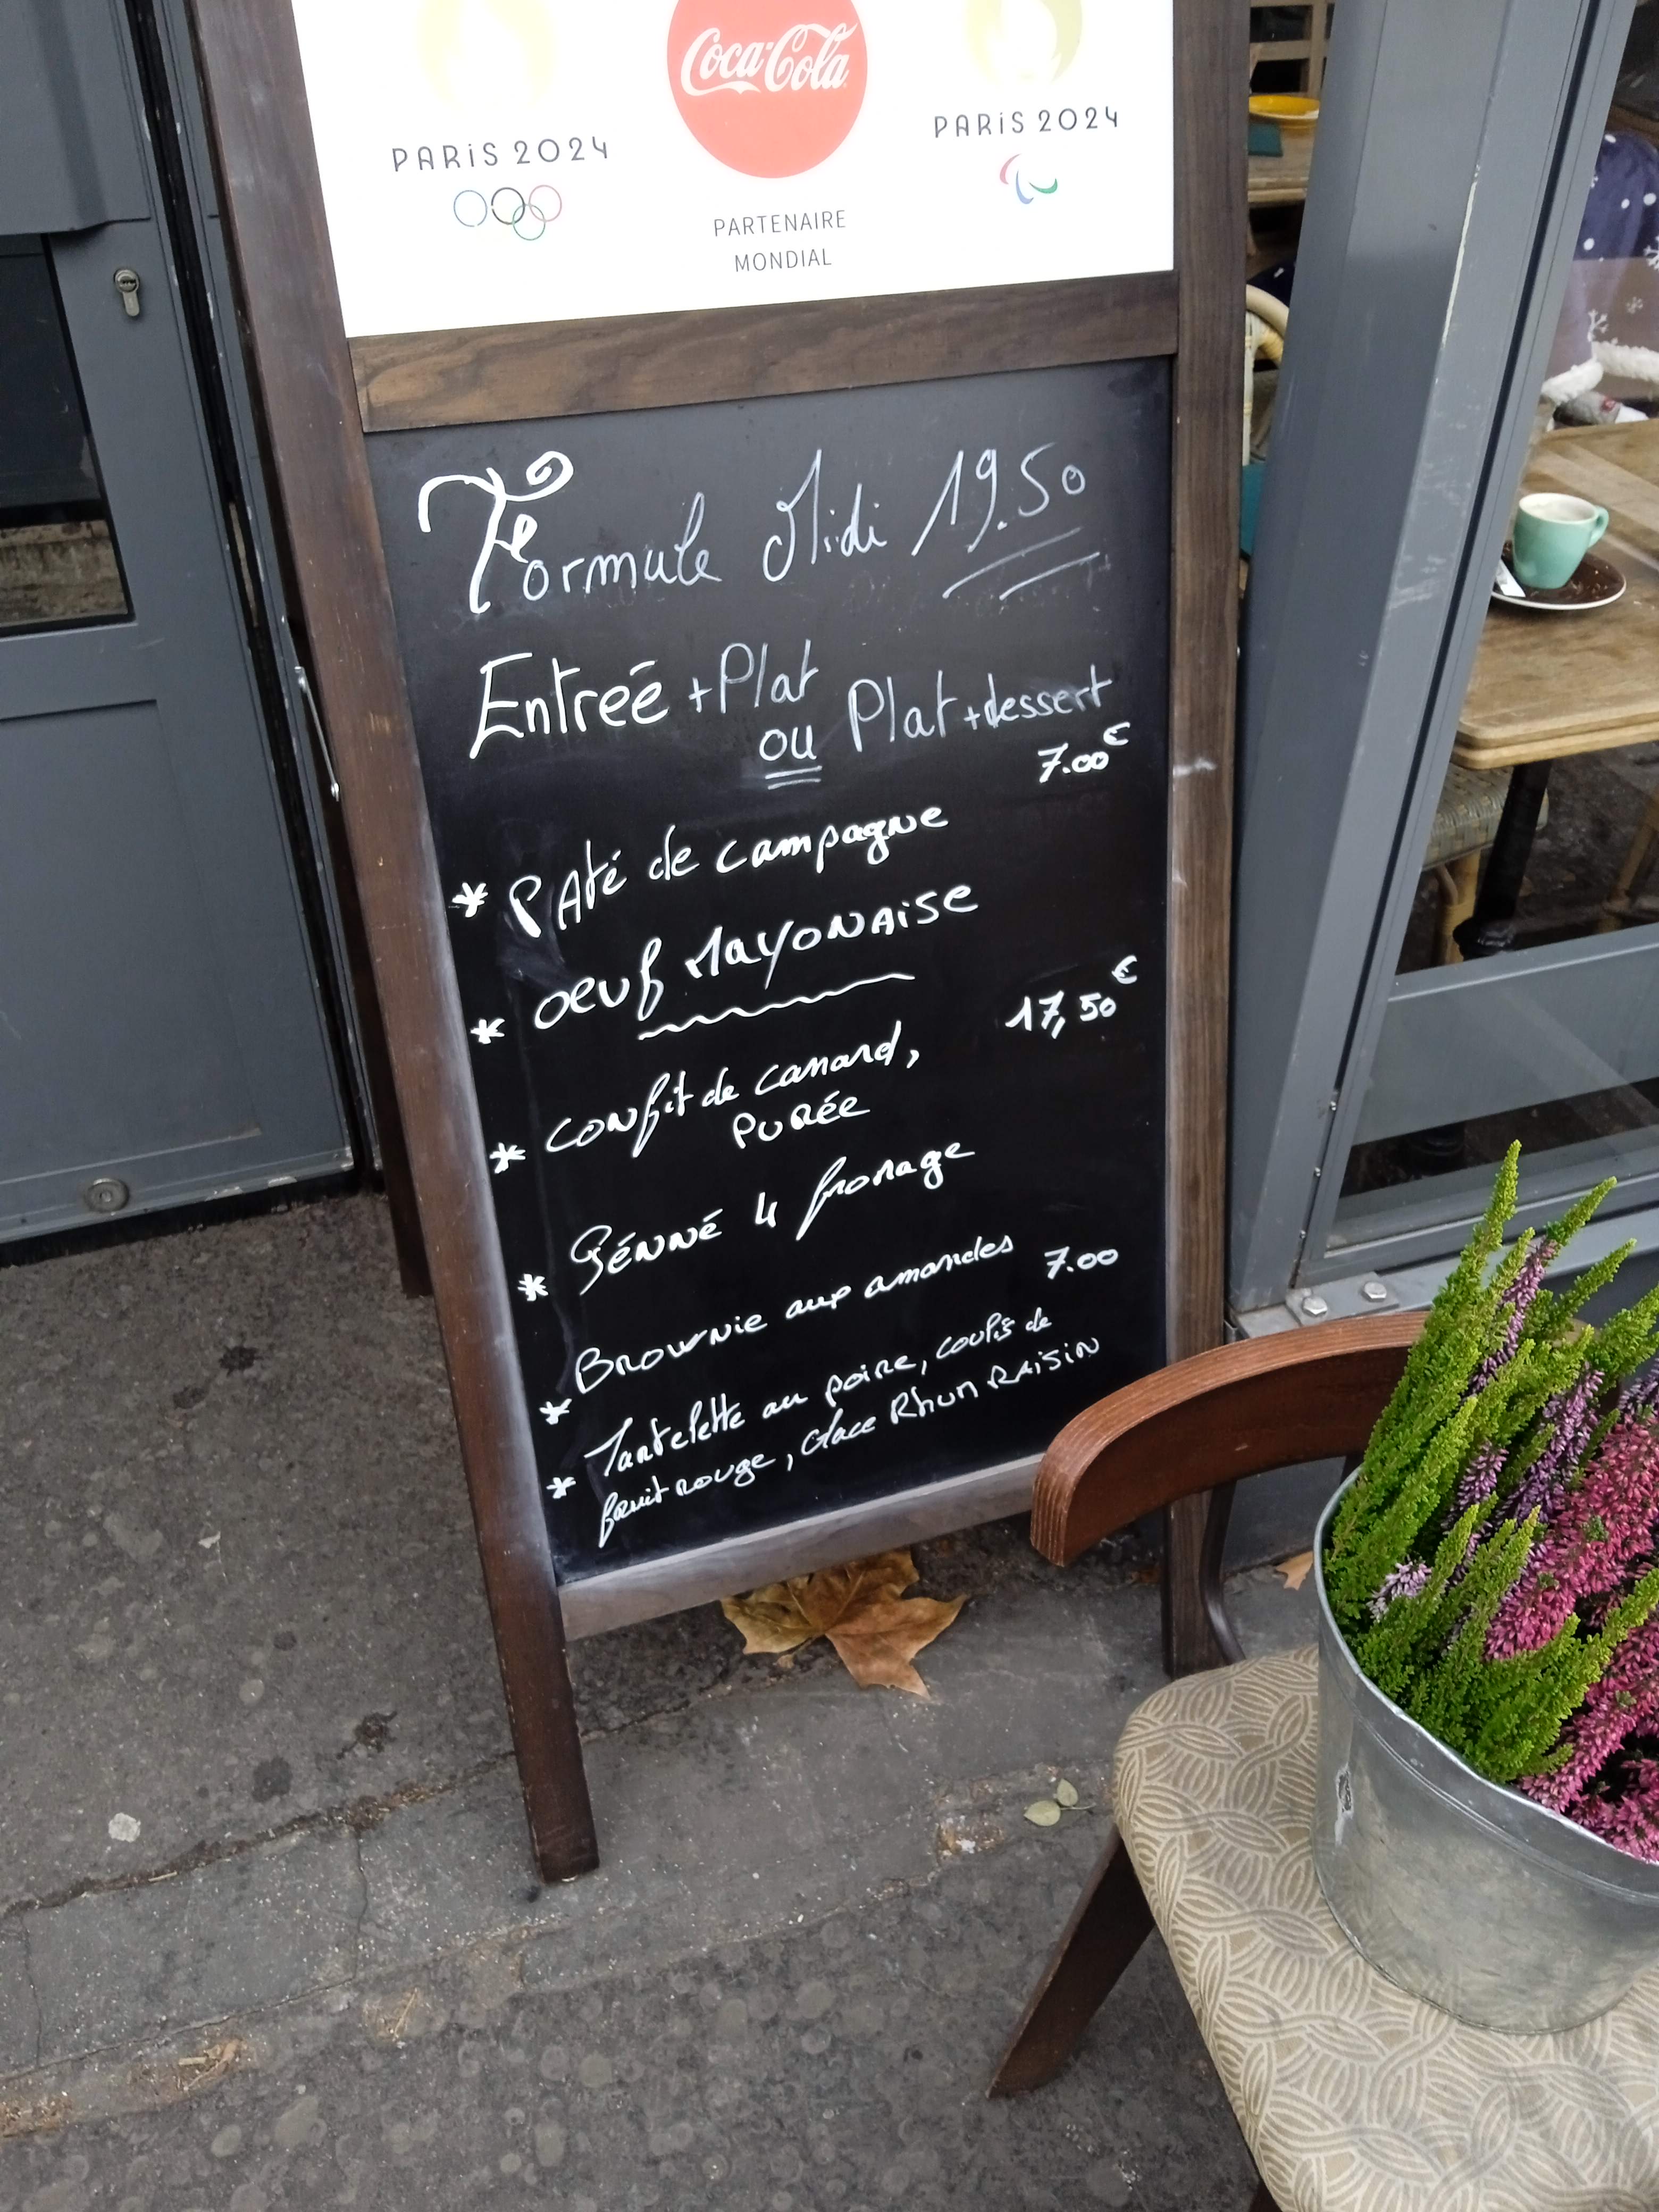 PARIS 2024
Coca-Cola
PARIS 2024
PARTENAIRE
MONDIAL
Formule Midi 19.50
Entreé + Plat
ou Plat + dessert
7.00€
* PAté de campagne
* oeuf MAYONAISE
17,50€
* confit de canard,
PURÉE
* PÉNNÉ 4 fromage
* Brownie aux amandes 7.00
* Tartelette au poire, coulis de
fruit rouge, Glace Rhum RAISIN